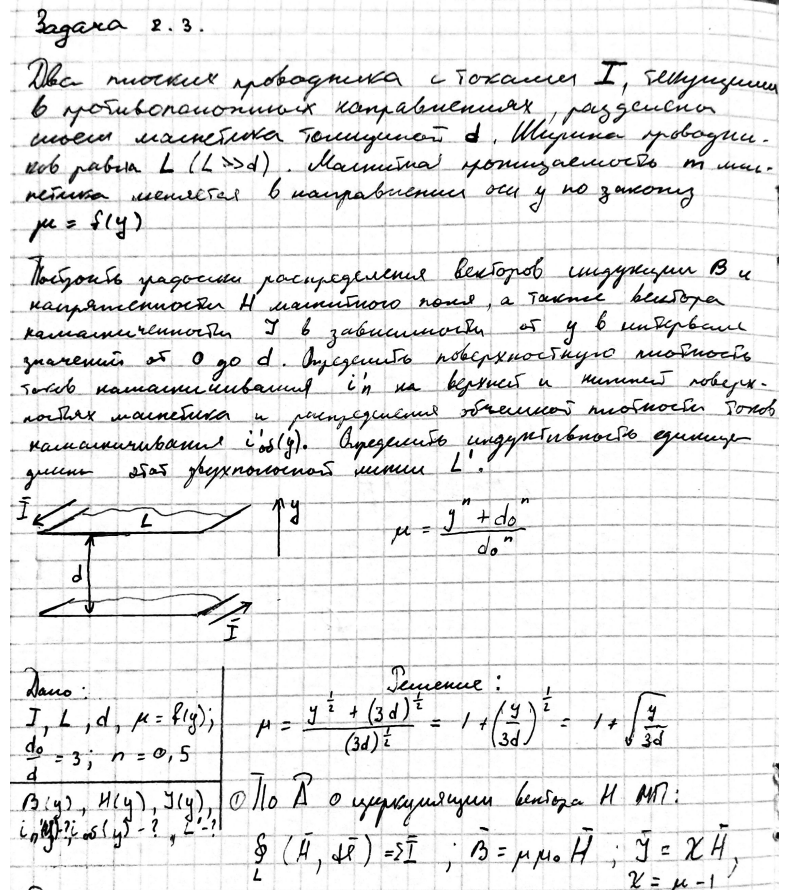 Задача 2.3.
Два плоских проводника с токами I, текущими
в противоположных направлениях, разделены
слоем магнетика толщиной d. Ширина проводни-
ков равна L (L>>d). Магнитная проницаемость m маг-
нетика меняется в направлении оси y по закону
μ = f(y)
Построить графики распределения векторов индукции B и
напряженности H магнитного поля, а также вектора
намагниченности J в зависимости от y в интервале
значений от 0 до d. Определить поверхностную плотность
токов намагничивания i'п на верхней и нижней поверх-
ностях магнетика и распределение объемной плотности токов
намагничивания i'об(y). Определить индуктивность единицы
длины этой двухполосной линии L'.
Ī
L
y
d
Ī
μ = (yⁿ + d₀ⁿ) / d₀ⁿ
Дано:
I, L, d, μ = f(y);
d₀/d = 3; n = 0,5
B(y), H(y), J(y),
i'п(y)-?, i'об(y)-?, L'-?
Решение:
μ = (y^(1/2) + (3d)^(1/2)) / (3d)^(1/2) = 1 + (y/3d)^(1/2) = 1 + √(y/3d)
① По Т̄ о циркуляции вектора H МП:
∮_L (H̄, dl̄) = ΣĪ ; B̄ = μμ₀H̄ ; J̄ = χH̄,
χ = μ - 1